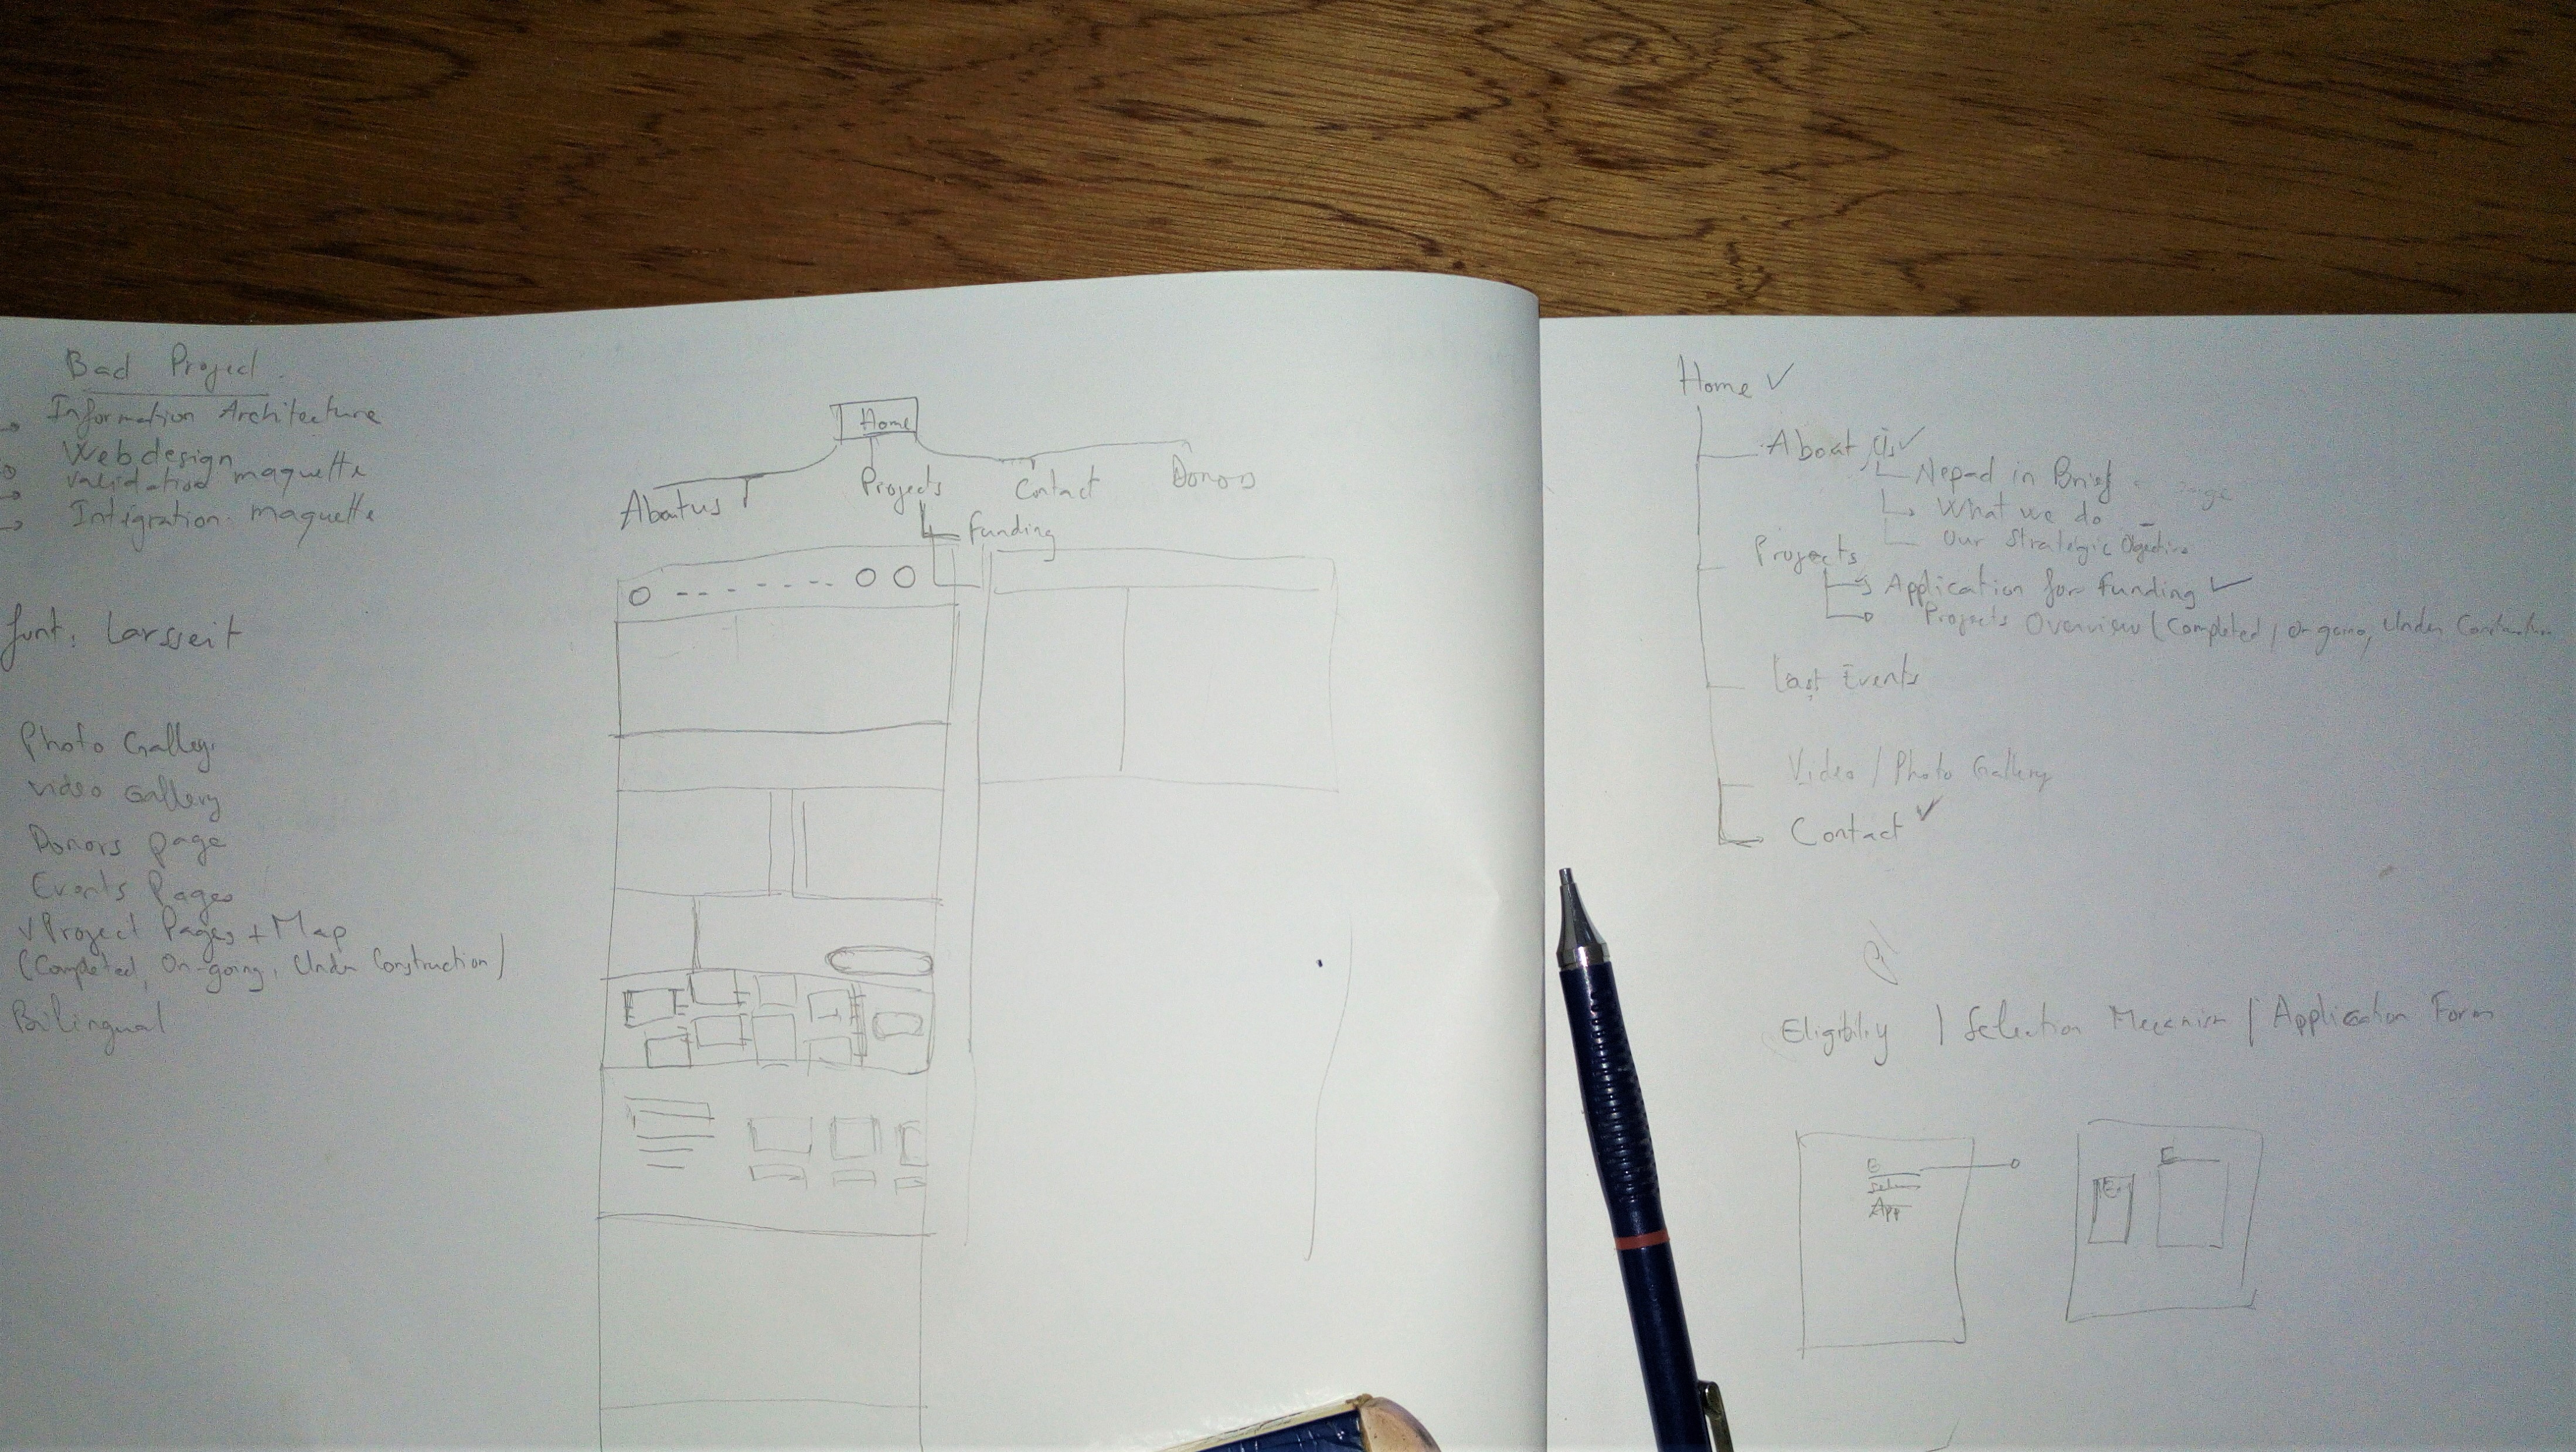 Bad Project
Information Architecture
Webdesign
validation maquette
Intégration maquette
font: Larsseit
Photo Gallery
Video Gallery
Donors page
Events Pages
√ Project Pages + Map
(Completed, On-going, Under Construction)
Bilingual
Home
Aboutus
Projects
Contact
Donors
Funding
Home ✓
About Us ✓
Nepad in Brief
What we do
Our Strategic Objective
Projects
Application for Funding ✓
Projects Overview (Completed, On going, Under Construction
Last Events
Video / Photo Gallery
Contact ✓
Eligibility | Selection Mecanism | Application Form
E
Selec
App
E